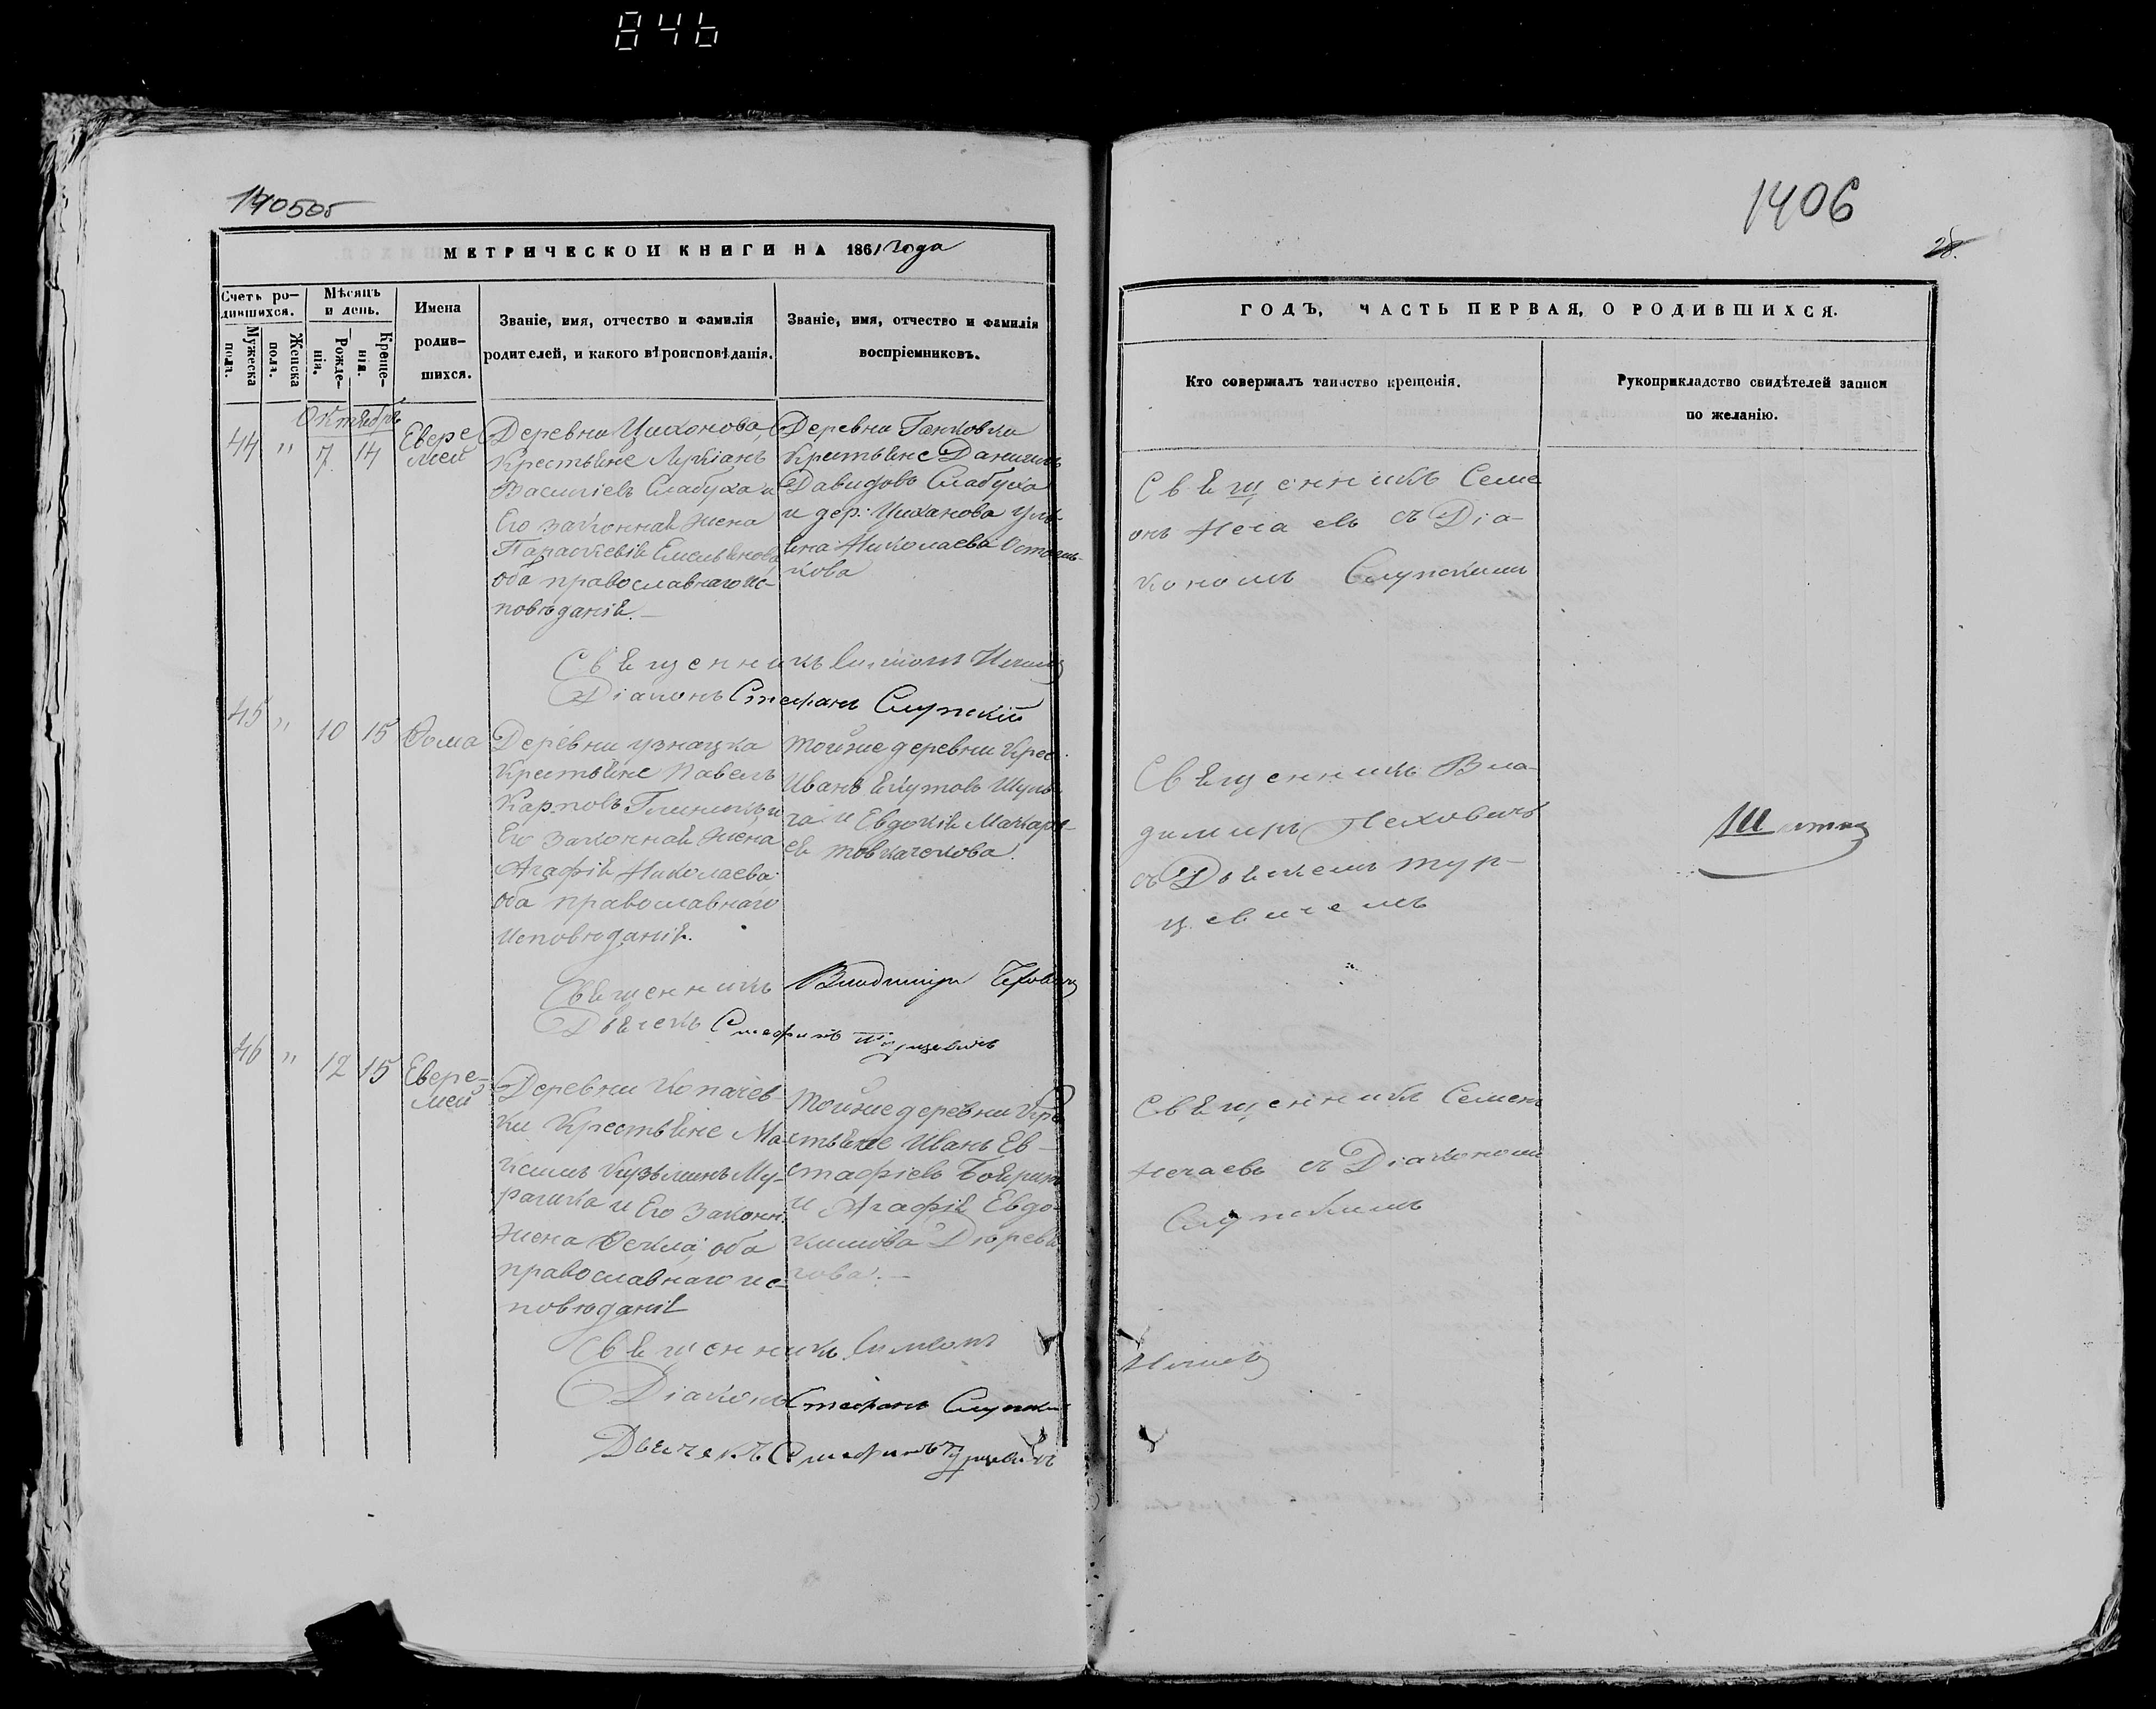 846
140505
МЕТРИЧЕСКОЙ КНИГИ НА 1861 года
Счетъ ро-
дившихся.
Мужеска
пола.
Женска
пола.
Мѣсяцъ
и день.
Рожде-
нія.
Креще-
нія.
Имена
родив-
шихся.
Званіе, имя, отчество и фамилія
родителей, и какого вѣроисповѣданія.
Званіе, имя, отчество и фамилія
воспріемниковъ.
Октябрь
44 " 7 14
Евере
мей
Деревни Циханова,
Крестьяне Лукіанъ
Василіевъ Слабуха и
Его законная жена
Параскевія Емельянова
оба православнаго ис-
повѣданія.—
Деревни Ганковки
Крестьяне Данилъ
Давидовъ Слабуха
и дер: Циханова Уль-
яна Николаева
кова
Священникъ
Діаконъ Стефанъ Слупскій
45 " 10 15
Ѳома
Деревни Узнацка
Крестьяне Павелъ
Карповъ и
Его законная жена
Агафія Николаева
оба православнаго
Исповѣданія.
Тойже деревни Крес.
Иванъ Шуль
га и Евдокія Макаре-
ва
Священникъ Владимиръ
Дьячекъ Стефанъ Турцевичъ
46 " 12 15
Евере-
мей
Деревни Копачев-
ки Крестьяне Ма-
ксимъ Кузьминъ Му-
рашка и Его законн.
жена Ѳекла, оба
православнаго ис-
повѣданія
Тойже деревни Кре
стьяне Иванъ Ев-
стафіевъ Бояринъ
и Агафія Евдо-
кимова
Священникъ Симеонъ
Діаконъ Стефанъ Слупскій
Дьячекъ Стефанъ Турцевичъ
1406
28.
ГОДЪ, ЧАСТЬ ПЕРВАЯ, О РОДИВШИХСЯ.
Кто совершалъ таинство крещенія.
Рукоприкладство свидѣтелей записи
по желанію.
Священникъ Симе
онъ Нечаевъ съ Діа-
кономъ Слупскимъ
Священникъ Вла-
димиръ
съ Дьячкемъ Тур-
цевичемъ
Священникъ Семенъ
Нечаевъ съ Діакономъ
Слупскимъ
Нечаевъ